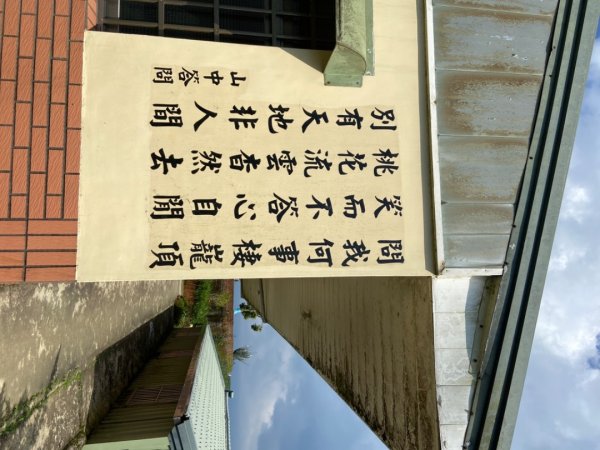 問我何事棲巃頂
笑而不答心自閒
桃花流雲香然去
別有天地非人間
山中答問